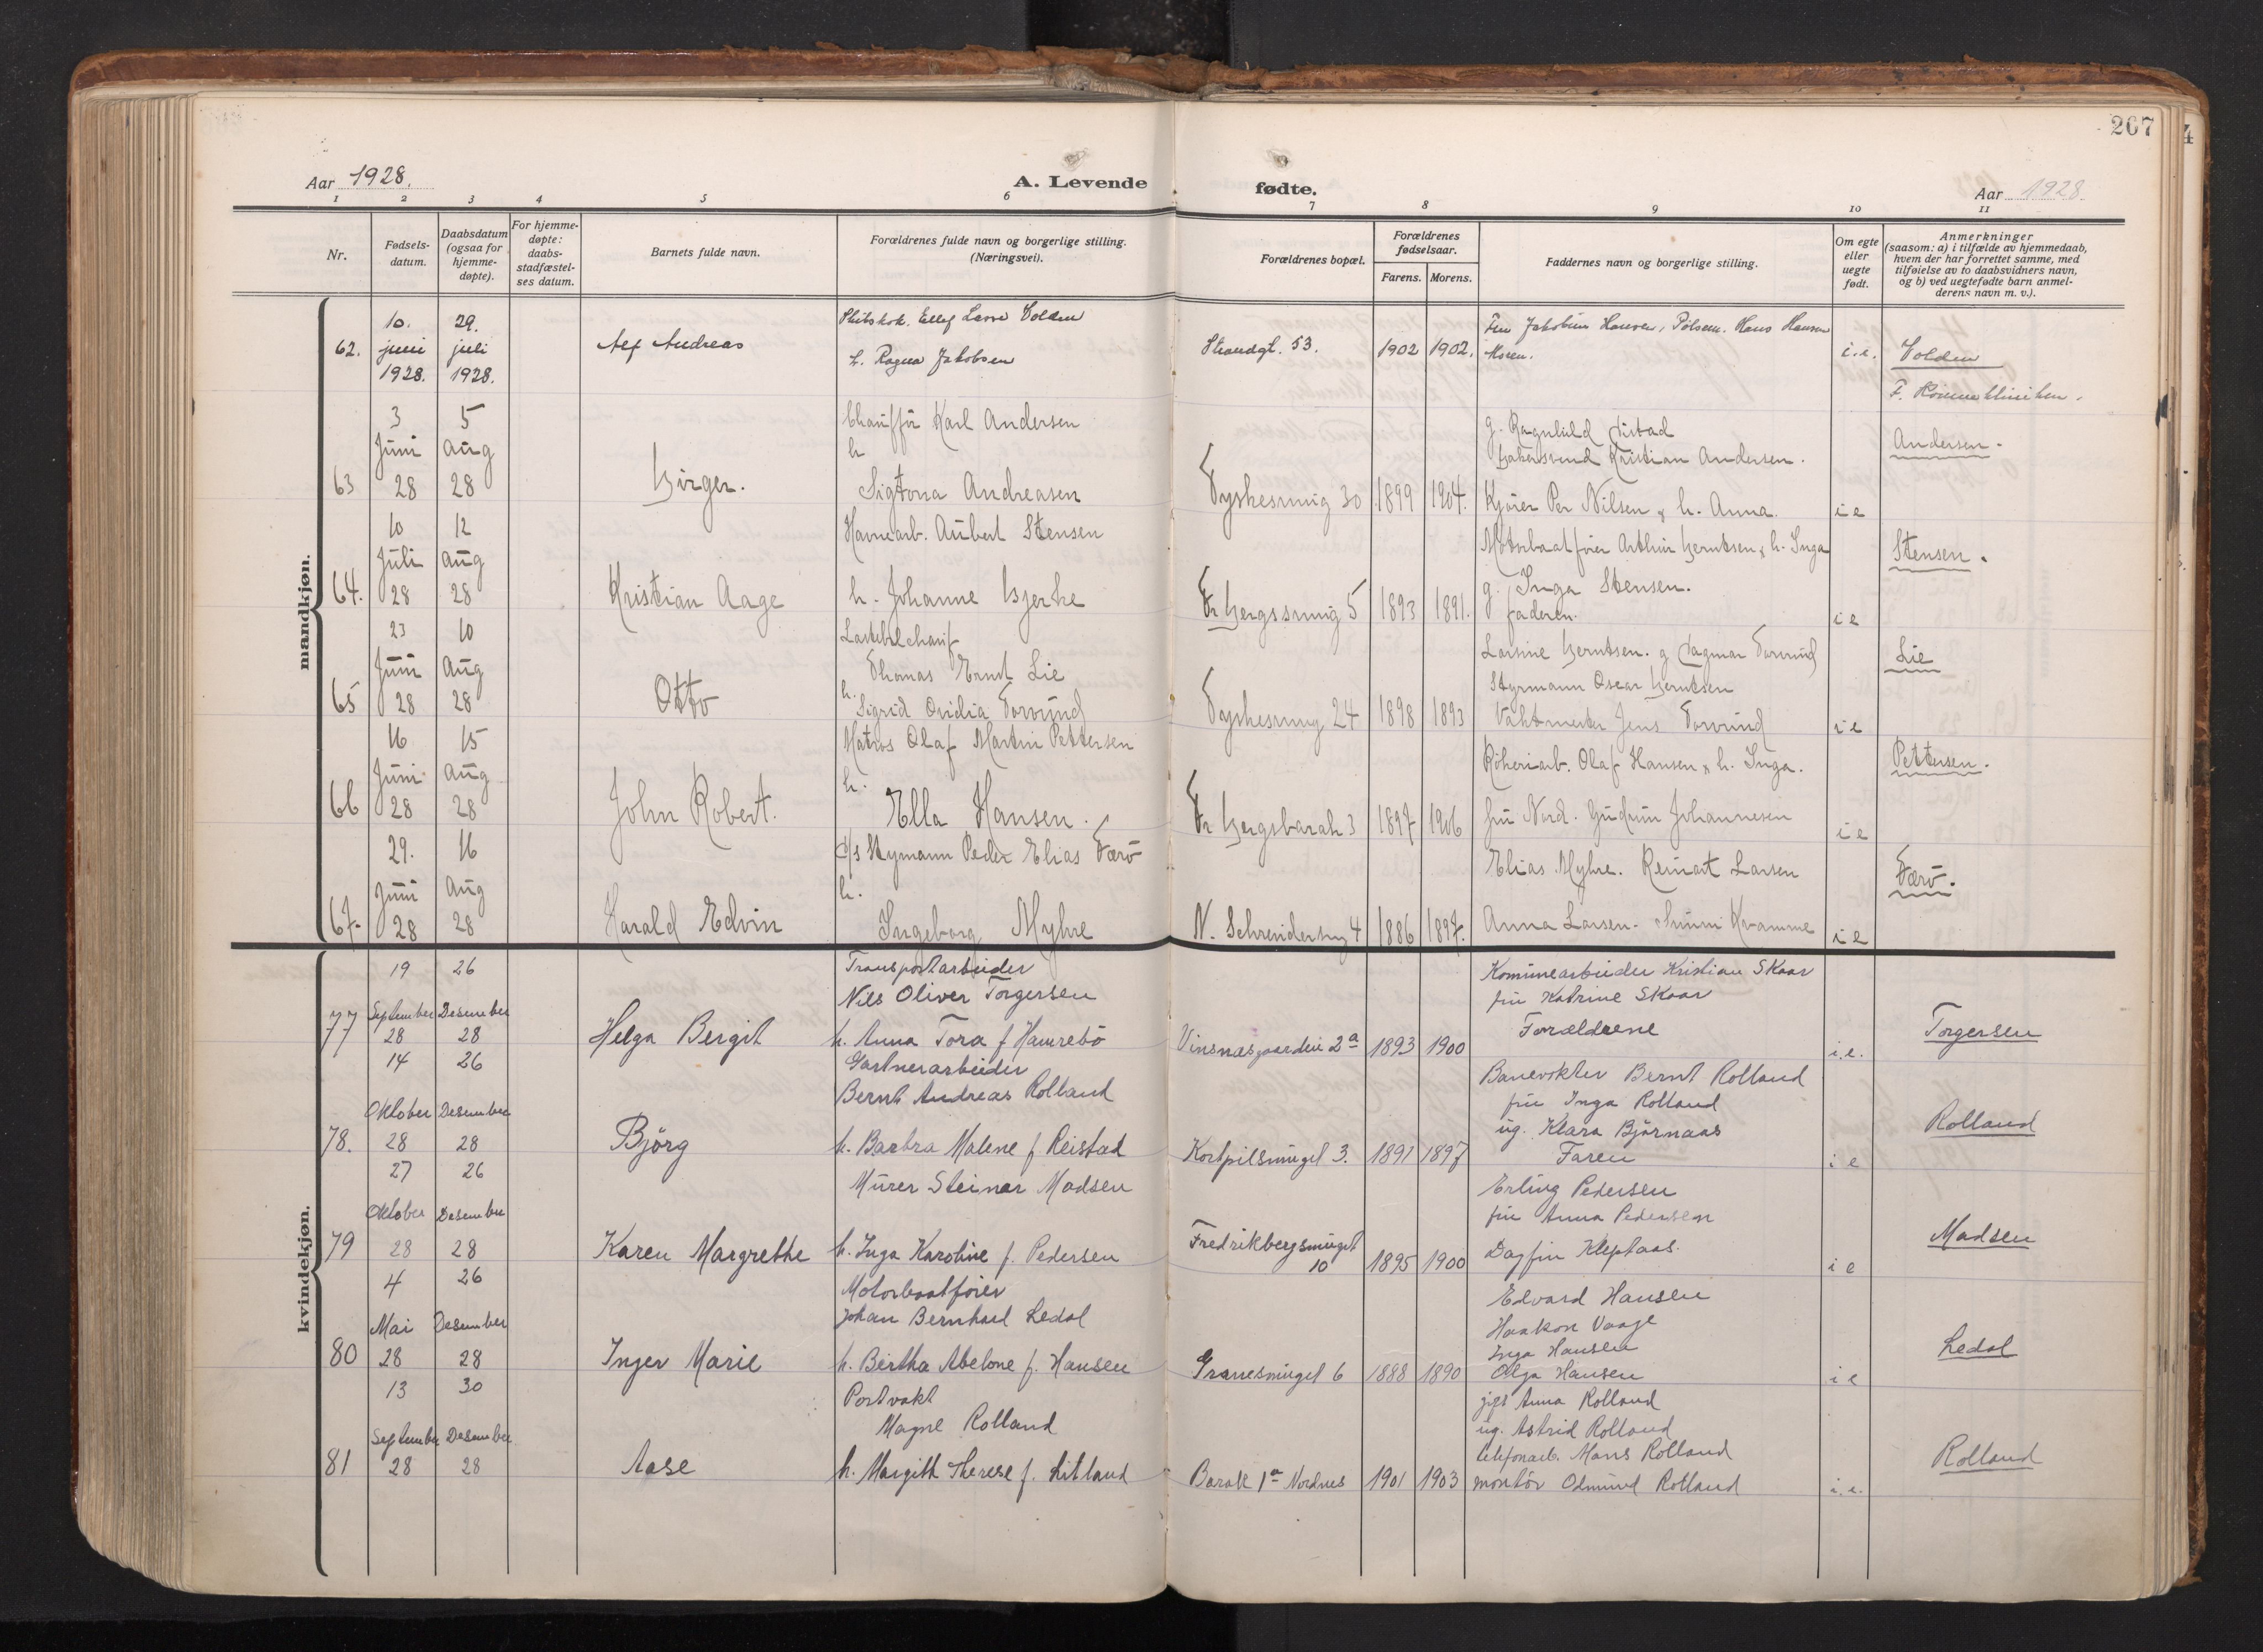 267
Aar 1928.
A. Levende
fødte.
Aar 1928
1 2 3 4 5 6 7 8 9 10 11
Nr.
Fødsels-
datum.
Daabsdatum
(ogsaa for
hjemme-
døpte).
For hjemme-
døpte:
daabs-
stadfæstel-
ses datum.
Barnets fulde navn.
Forældrenes fulde navn og borgerlige stilling.
(Næringsvei).
Forældrenes bopæl.
Forældrenes
fødselsaar.
Farens. Morens.
Faddernes navn og borgerlige stilling.
Om egte
eller
uegte
født.
Anmerkninger
(saasom: a) i tilfælde av hjemmedaab,
hvem der har forrettet samme, med
tilføielse av to daabsvidners navn,
og b) ved uegtefødte barn anmel-
derens navn m. v.).
mandkjøn.
62.
10.
juni
1928.
29.
juli
1928.
Alf Andreas
Volden
h. Ragna Jakobsen
Strandgt. 53.
1902 1902.
Hans Hansen
Moren.
i.e.
Volden
63
3
Juni
28
5
Aug
28
Birger.
Chauffør Karl Andersen
h
Sigtona Andreasen
Tyskesmug 30
1899 1904.
g. Ragnhild
Kristian Andersen.
Per Nilsen & h. Anna.
i e
Andersen.
64.
10
Juli
28
12
Aug
28
Kristian Aage
Havnearb. Aubert Stensen
h. Johanne Bjerke
Fr Bergssmug 5
1893 1891.
Motorbaatfører Arthur Berntsen & h. Inga
g. Inga Stensen.
faderen.
i e
Stensen.
65
23
Juni
28
10
Aug
28
Otto
Thomas Ernst Lie
h.
Sigrid Ovidia Torvund
Tyskesmug 24
1898 1893
Berntsen. g Dagmar Torvund
Styrmann Oscar Berntsen
Vaktmester Jens Torvund
i e
Lie
66
16
Juni
28
15
Aug
28
John Robert.
Matros Olaf Martin Pettersen
h.
Ella Hansen.
Fr Bergsbarak 3
1897 1906
Olaf Hansen & h. Inga.
fru Nord. Gudrun Johannesen
i e
Pettersen.
67.
29.
Juni
28
16
Aug
28
Harald Edvin
Peder Elias Værö
h.
Ingeborg Myhre
1886 1897.
Elias Myhre. Larsen
Anna Larsen. Kvamme
i e
Værö.
kvindekjøn.
77
19
September
28
26
Desember
28
Helga Bergit
Transportarbeider
Nils Oliver Torgersen
h. Anna Tora f Hamrebö
Vinsnæsgaarden 2a
1893 1900
Komunearbeider Kristian Skaar
fru Katrine Skaar
Forældrene
i.e.
Torgersen
78.
14
Oktober
28
26
Desember
28
Björg
Gartnerarbeider
Bernt Andreas Rolland
h. Barbra Malene f Reistad
Kortpilsmuget 3.
1891 1897
Banevokter Bernt Rolland
fru Inga Rolland
ug. Klara Björnaas
Faren
i e
Rolland
79
27
Oktober
28
26
Desember
28
Karen Margrethe
Murer Steinar Madsen
h. Inga Karoline f. Pedersen
Fredrikbergsmuget
10
1895 1900
Erling Pedersen
fru Anna Pedersen
Dagfin Kleptaas.
i e
Madsen
80
4
Mai
28
26
Desember
28
Inger Marie
Motorbaatfører
Johan Bernhard Ledal
h. Bertha Abelone f. Hansen
Granesmuget 6
1888 1890
Edvard Hansen
Haakon Vaage
Inga Hansen
Olga Hansen
i e
Ledal
81
13
September
28
30
Desember
28
Aase
Portvakt
Magne Rolland
h. Margith Therese f. Litland
Barak 1a Nordnes
1901 1903
gift Anna Rolland
ug. Astrid Rolland
telefonarb. Mons Rolland
montör Odmund Rolland
i.e.
Rolland